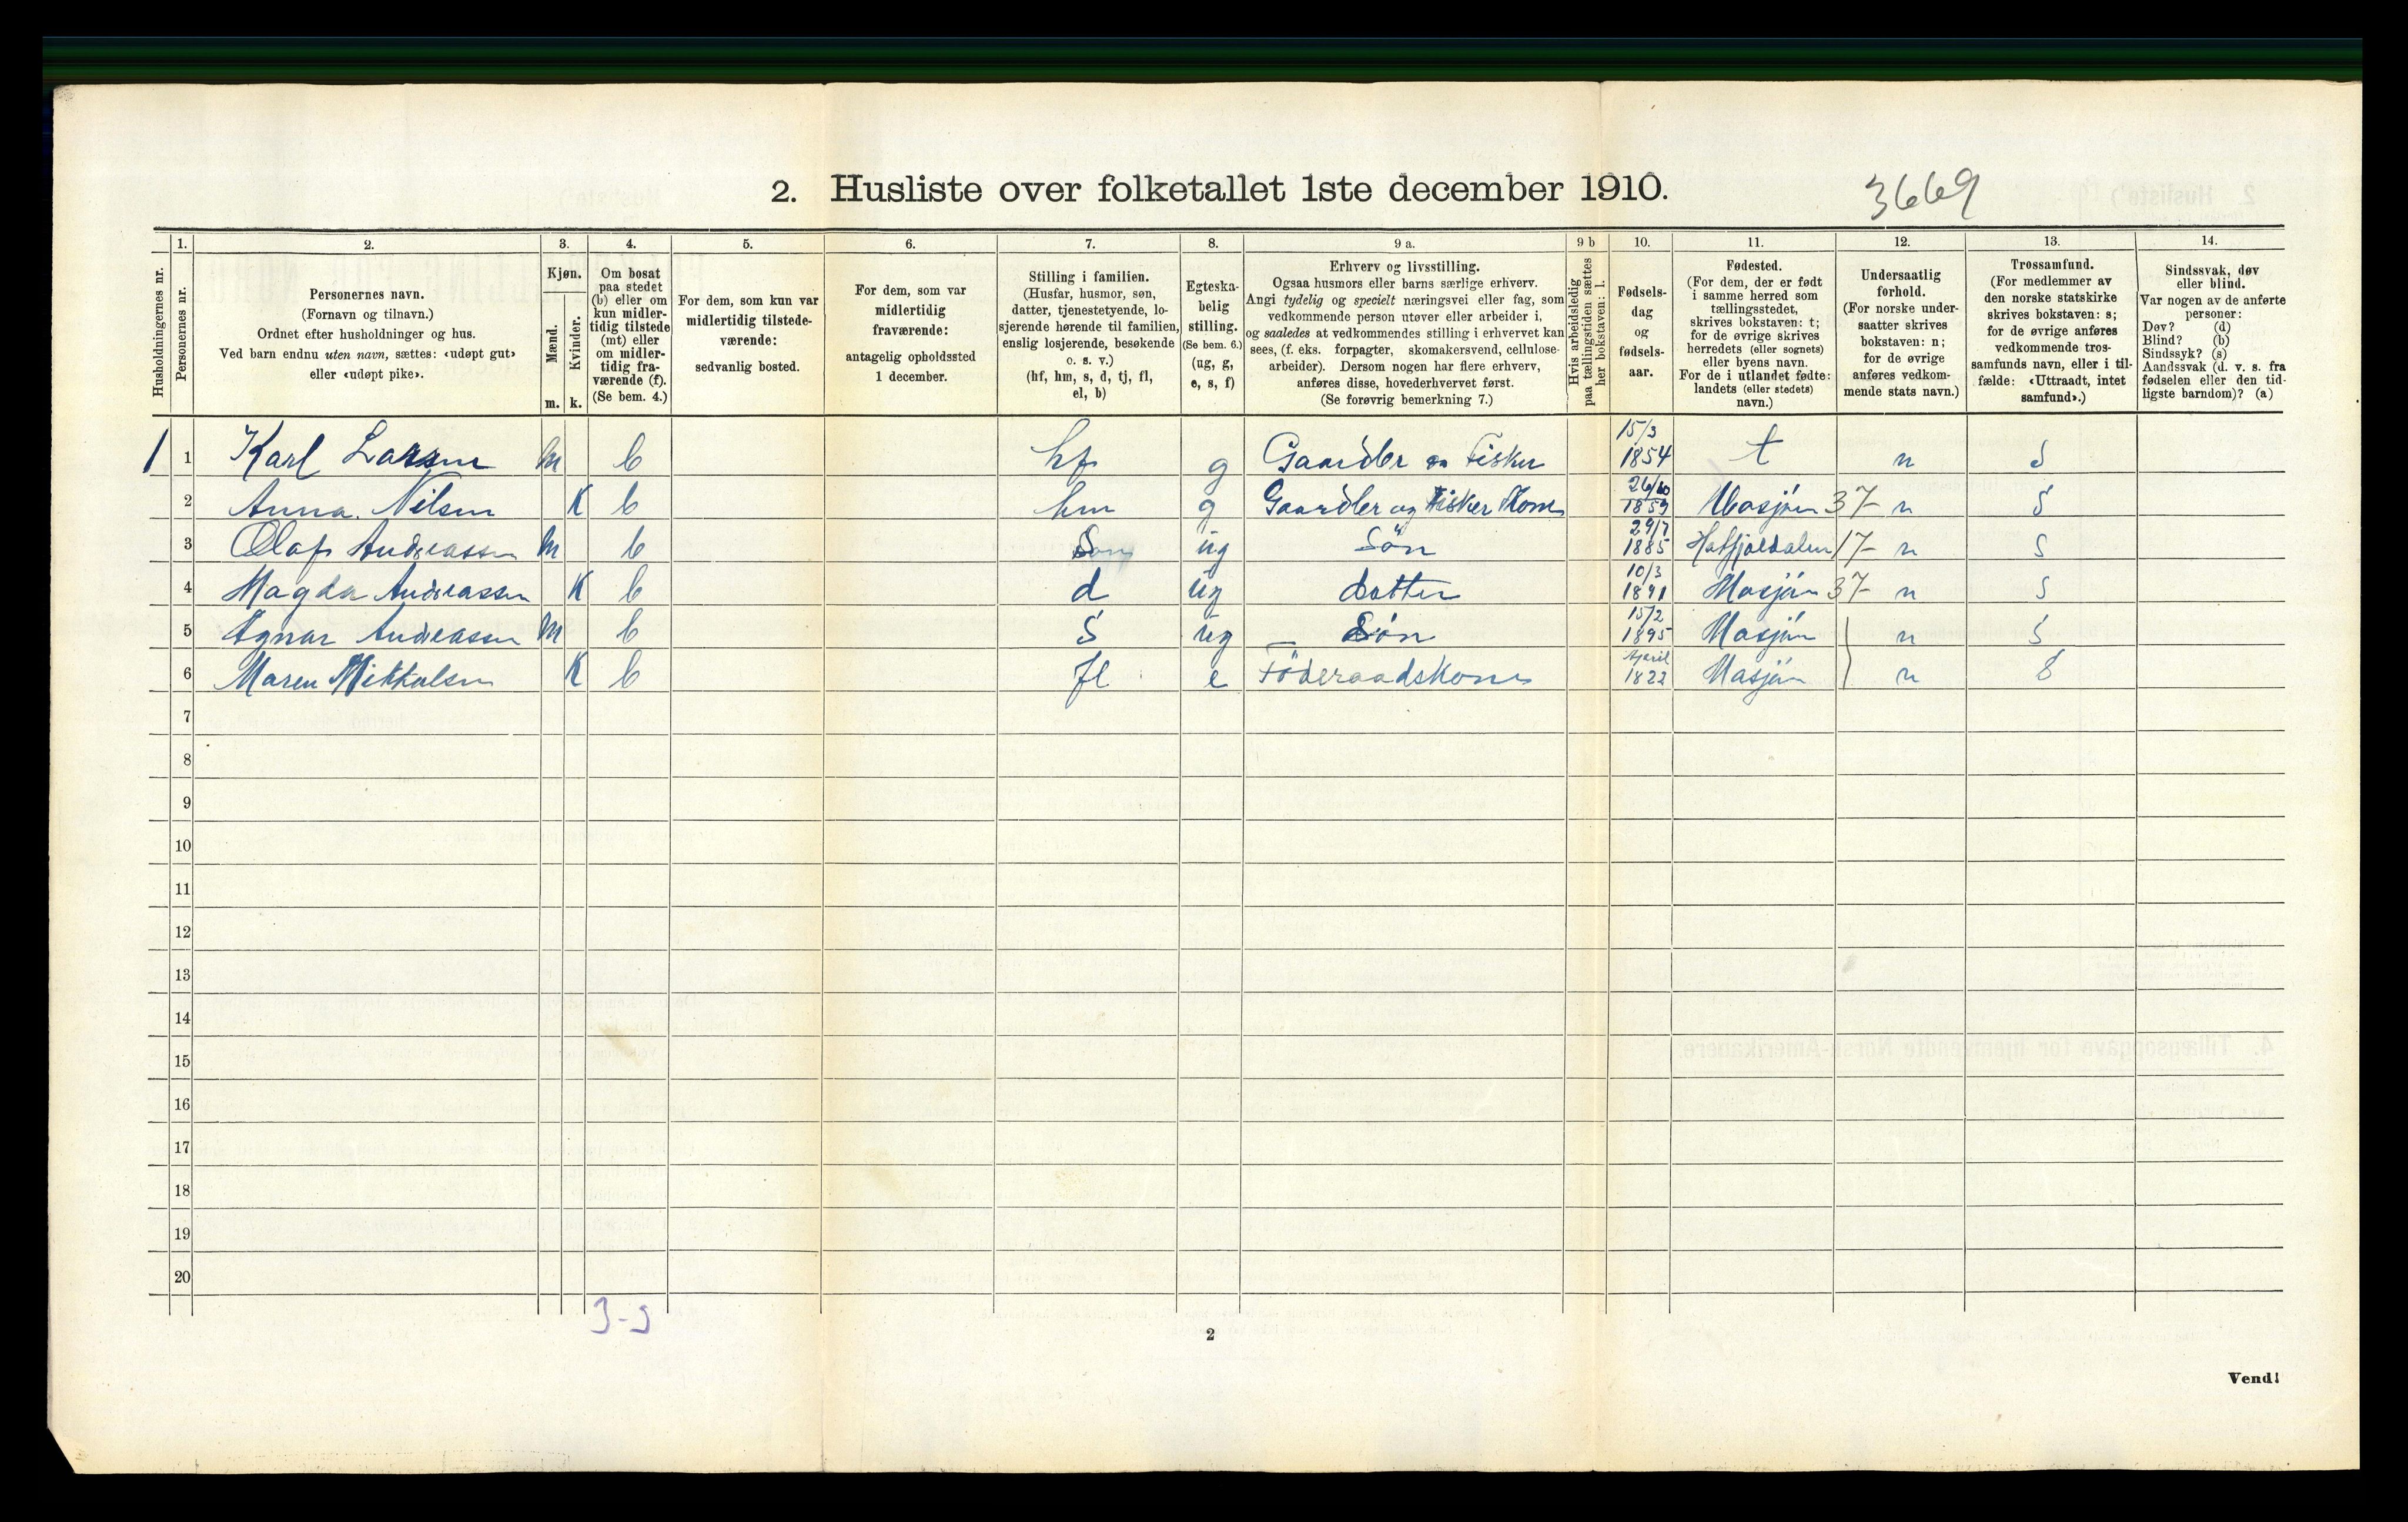 2. Husliste over folketallet 1ste december 1910.
3669
Husholdningernes nr.
1.
Personernes nr.
2.
Personernes navn.
(Fornavn og tilnavn.)
Ordnet efter husholdninger og hus.
Ved barn endnu uten navn, sættes: «udøpt gut»
eller «udøpt pike».
3.
Kjøn.
Mænd.
Kvinder.
m. k.
4.
Om bosat
paa stedet
(b) eller om
kun midler-
tidig tilstede
(mt) eller
om midler-
tidig fra-
værende (f).
(Se bem. 4.)
5.
For dem, som kun var
midlertidig tilstede-
værende:
sedvanlig bosted.
6.
For dem, som var
midlertidig
fraværende:
antagelig opholdssted
1 december.
7.
Stilling i familien.
(Husfar, husmor, søn,
datter, tjenestetyende, lo-
sjerende hørende til familien,
enslig losjerende, besøkende
o. s. v.)
(hf, hm, s, d, tj, fl,
el, b)
8.
Egteska-
belig
stilling.
(Se bem. 6.)
(ug, g,
e, s, f)
9 a.
Erhverv og livsstilling.
Ogsaa husmors eller barns særlige erhverv.
Angi tydelig og specielt næringsvei eller fag, som
vedkommende person utøver eller arbeider i,
og saaledes at vedkommendes stilling i erhvervet kan
sees, (f. eks. forpagter, skomakersvend, cellulose-
arbeider). Dersom nogen har flere erhverv,
anføres disse, hovederhvervet først.
(Se forøvrig bemerkning 7.)
9 b
Hvis arbeidsledig
paa tællingstiden sættes
her bokstaven: l.
10.
Fødsels-
dag
og
fødsels-
aar.
11.
Fødested.
(For dem, der er født
i samme herred som
tællingsstedet,
skrives bokstaven: t;
for de øvrige skrives
herredets (eller sognets)
eller byens navn.
For de i utlandet fødte:
landets (eller stedets)
navn.)
12.
Undersaatlig
forhold.
(For norske under-
saatter skrives
bokstaven: n;
for de øvrige
anføres vedkom-
mende stats navn.)
13.
Trossamfund.
(For medlemmer av
den norske statskirke
skrives bokstaven: s;
for de øvrige anføres
vedkommende tros-
samfunds navn, eller i til-
fælde: «Uttraadt, intet
samfund».)
14.
Sindssvak, døv
eller blind.
Var nogen av de anførte
personer:
Døv? (d)
Blind? (b)
Sindssyk? (s)
Aandssvak (d. v. s. fra
fødselen eller den tid-
ligste barndom)? (a)
1 1 Karl Larsen M b hf g Gaardbr og Fisker 15/3 1854 t n S
2 Anna Nilsen K b hm g Gaardbr og Fisker Kone 1859 Mosjøen 37- n S
3 Olaf Andreassen M b Søn ug Søn 29/7 1885 Hatfjeldalen 17- n S
4 Magda Andreassen K b d ug Datter 10/3 1891 Mosjøn 37- n S
5 Agnar Andreassen M b S ug Søn 15/2 1895 Mosjøn n S
6 Maren Mikkelsen K b fl e Föderaadskone April 1822 Mosjøn n S
7
8
9
10
11
12
13
14
15
16
17
18
19
20
3-3
2
Vend!